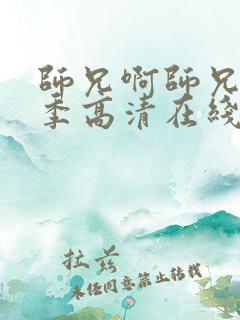 師兄啊師兄
季高清在綫
拉兹
未经同意禁止转载